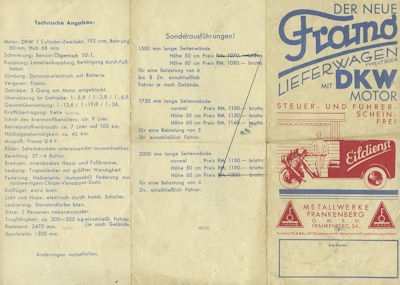 Technische Angaben:
Motor: DKW 1 Cylinder-Zweitakt, 192 ccm, Bohrung
60 mm, Hub 68 mm.
Schmierung: Benzin-Ölgemisch 10:1.
Kupplung: Lamellenkupplung, betätigung durch Fuß-
hebel.
Zündung: Dynamo-elektrisch mit Batterie.
Vergaser: Framo.
Getriebe: 3 Gang am Motor angeblockt.
Kraftübertragung: Kette
Inhalt des Brennstoffbehälters: ca. 9 Liter
Betriebsstoffverbrauch: ca. 7 Liter auf 100 km.
Höchstgeschwindigkeit: ca. 40 km.
Auspuff: Framo D.R.P.
Räder: Scheibenräder untereinander auswechselbar.
Bereifung: 27×4 Ballon.
Bremsen: Innenbacken Hand- und Fußbremse.
Lenkung: Trapezlenker mit größter Wendigkeit
Federung: Halbelliptik- (Automobil) Federung aus
hochwertigem Chrom-Vanadium-Stahl.
Kotflügel: extra breit.
Licht und Hupe: elektrisch durch komb. Schalter.
Lackierung: Standardfarbe blau.
Sitze: 2 Personen nebeneinander.
Tragfähigkeit: ca. 300—500 kg einschließl. Fahrer,
Radstand: 2470 mm (je nach Gelände.
Spurbreite: 1300 mm.
Änderungen vorbehalten.
Sonderausführungen!
1500 mm lange Seitenwände
Höhe 50 cm Preis RM. 1070.— brutto
Höhe 60 cm Preis RM. 1080.— brutto
für eine Belastung von 6
bis 8 Ztr. einschließlich
Fahrer je nach Gelände.
1750 mm lange Seitenwände
normal Preis RM. 1100.— brutto
für eine Belastung von 8
Ztr. einschließl. Fahrer.
2000 mm lange Seitenwände
normal Preis RM. 1150.— brutto
Höhe 50 cm Preis RM. 1190.— brutto
Höhe 60 cm Preis RM. brutto
für eine Belastung von 8
Ztr. einschließl. Fahrer.
DER NEUE
Framo
LIEFERWAGEN
TYP LT 200 R
MIT DKW
MOTOR
STEUER- UND FÜHRER-
SCHEIN-
FREI
Eildienst
METALLWERKE
FRANKENBERG
G. M. B. H.
FRANKENBERG, SA.
Vertreter: